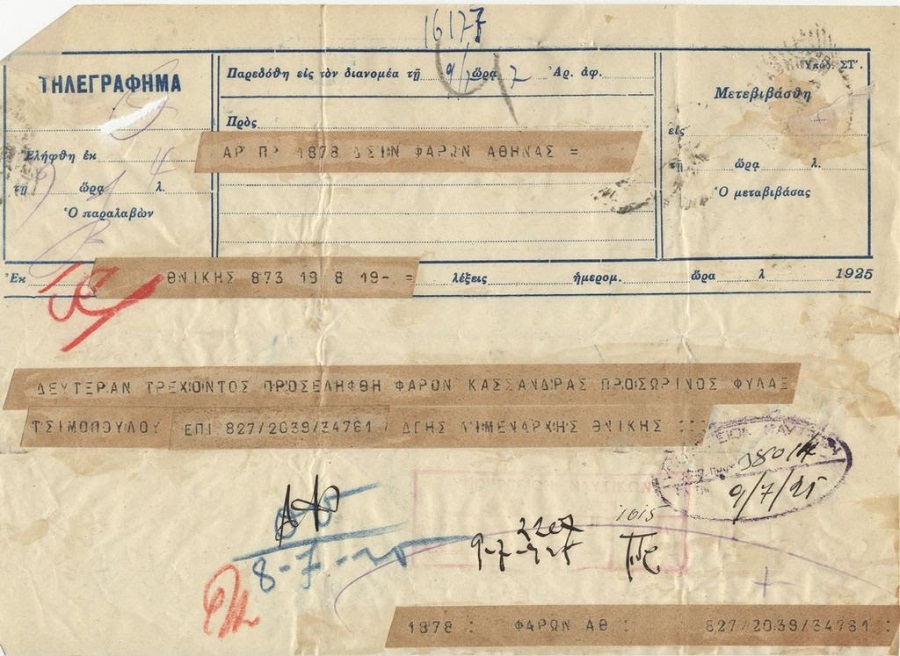 16177
ΤΗΛΕΓΡΑΦΗΜΑ
Ἐλήφθη ἐκ
τῇ ὥρᾳ λ.
Ὁ παραλαβὼν
Παρεδόθη εἰς τὸν διανομέα τῇ 9/7 ὥρᾳ 7 Ἀρ. ἀφ.
Πρὸς
ΑΡ ΠΡ 1878 ΔΣΙΝ ΦΑΡΩΝ ΑΘΗΝΑΣ =
Ὑποδ. ΣΤ'.
Μετεβιβάσθη
εἰς
τῇ ὥρᾳ λ.
Ὁ μεταβιβάσας
Ἐκ ΘΝΙΚΗΣ 873 19 8 19- = λέξεις ἡμερομ. ὥρα λ 1925
ΔΕΥΤΕΡΑΝ ΤΡΕΧΟΝΤΟΣ ΠΡΟΣΕΛΗΦΘΗ ΦΑΡΟΝ ΚΑΣΣΑΝΔΡΑΣ ΠΡΟΣΩΡΙΝΟΣ ΦΥΛΑΞ
ΤΣΙΜΟΠΟΥΛΟΥ ΕΠΙ 827/2039/34761 / ΔΓΗΣ ΛΙΜΕΝΑΡΧΗΣ ΘΝΙΚΗΣ : :
9/7/25
8-7-25
2207
9-7-925
1615
1878 : ΦΑΡΩΝ ΑΘ : 827/2039/34761 :